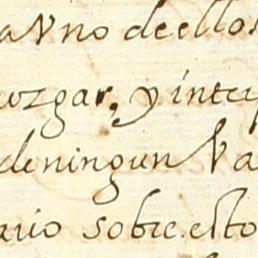 a Vno de ellos
uzgar, y inter
de ningun Va
auio sobre esto